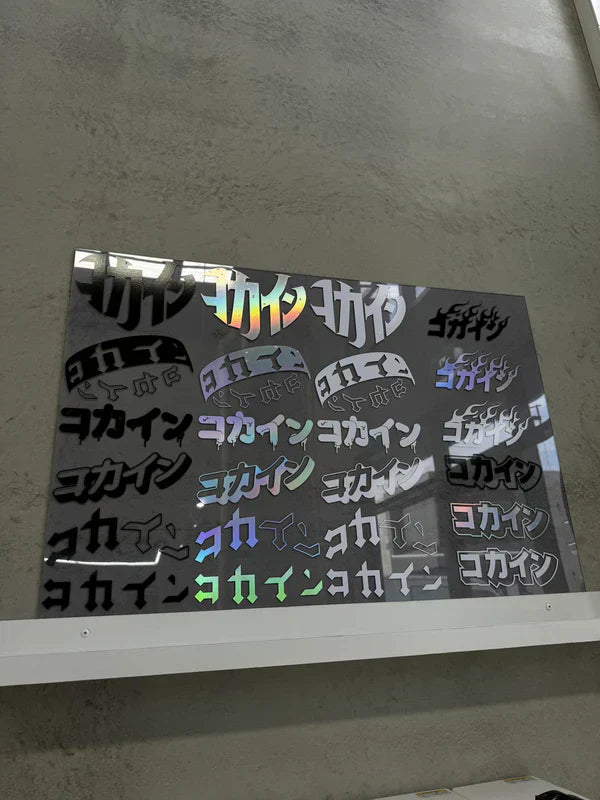 コカイン コカイン コカイン コカイン
コカイン コカイン コカイン コカイン
コカイン コカイン コカイン コカイン
コカイン コカイン コカイン コカイン
コカイン コカイン コカイン コカイン
コカイン コカイン コカイン コカイン